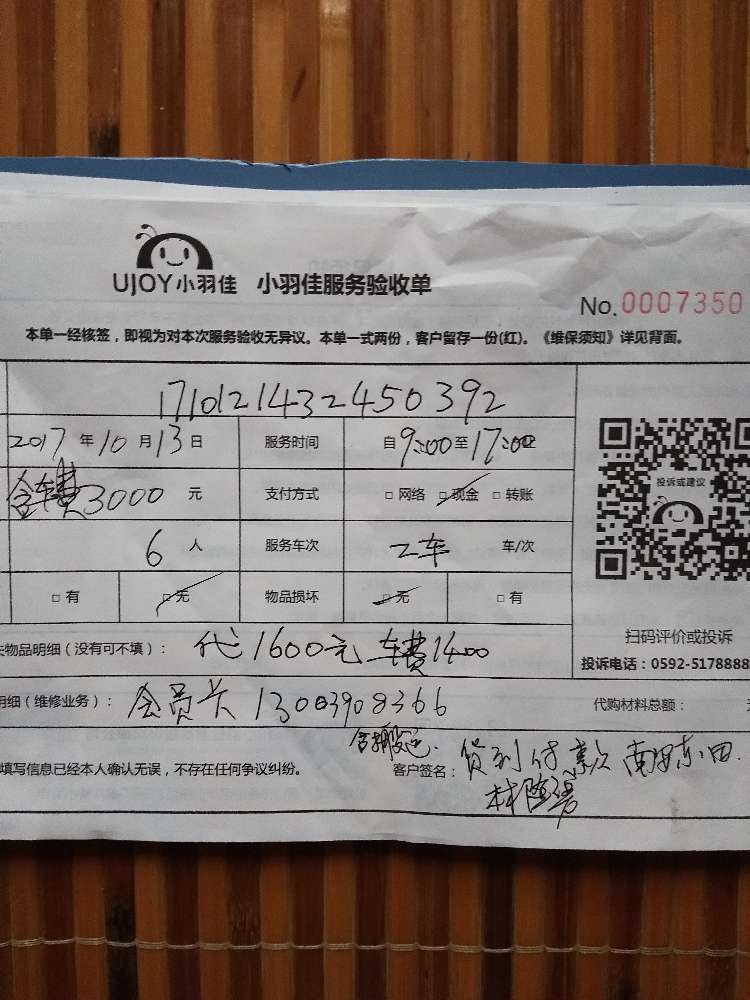 UJOY小羽佳 小羽佳服务验收单
No.0007350
本单一经核签，即视为对本次服务验收无异议。本单一式两份，客户留存一份(红)。《维保须知》详见背面。
1710121432450392
2017年10月13日 服务时间 自9:00至17:00
含车费3000 元 支付方式 □网络 □现金 □转账
投诉或建议
6 人 服务车次 2车 车/次
□有 □无 物品损坏 □无 □有
扫码评价或投诉
物品明细（没有可不填）： 代1600元 车费1400
投诉电话：0592-5178888
明细（维修业务）： 会员卡 13003908366 代购材料总额：
含搬运.
填写信息已经本人确认无误，不存在任何争议纠纷。 客户签名： 货到付款 南安东田.